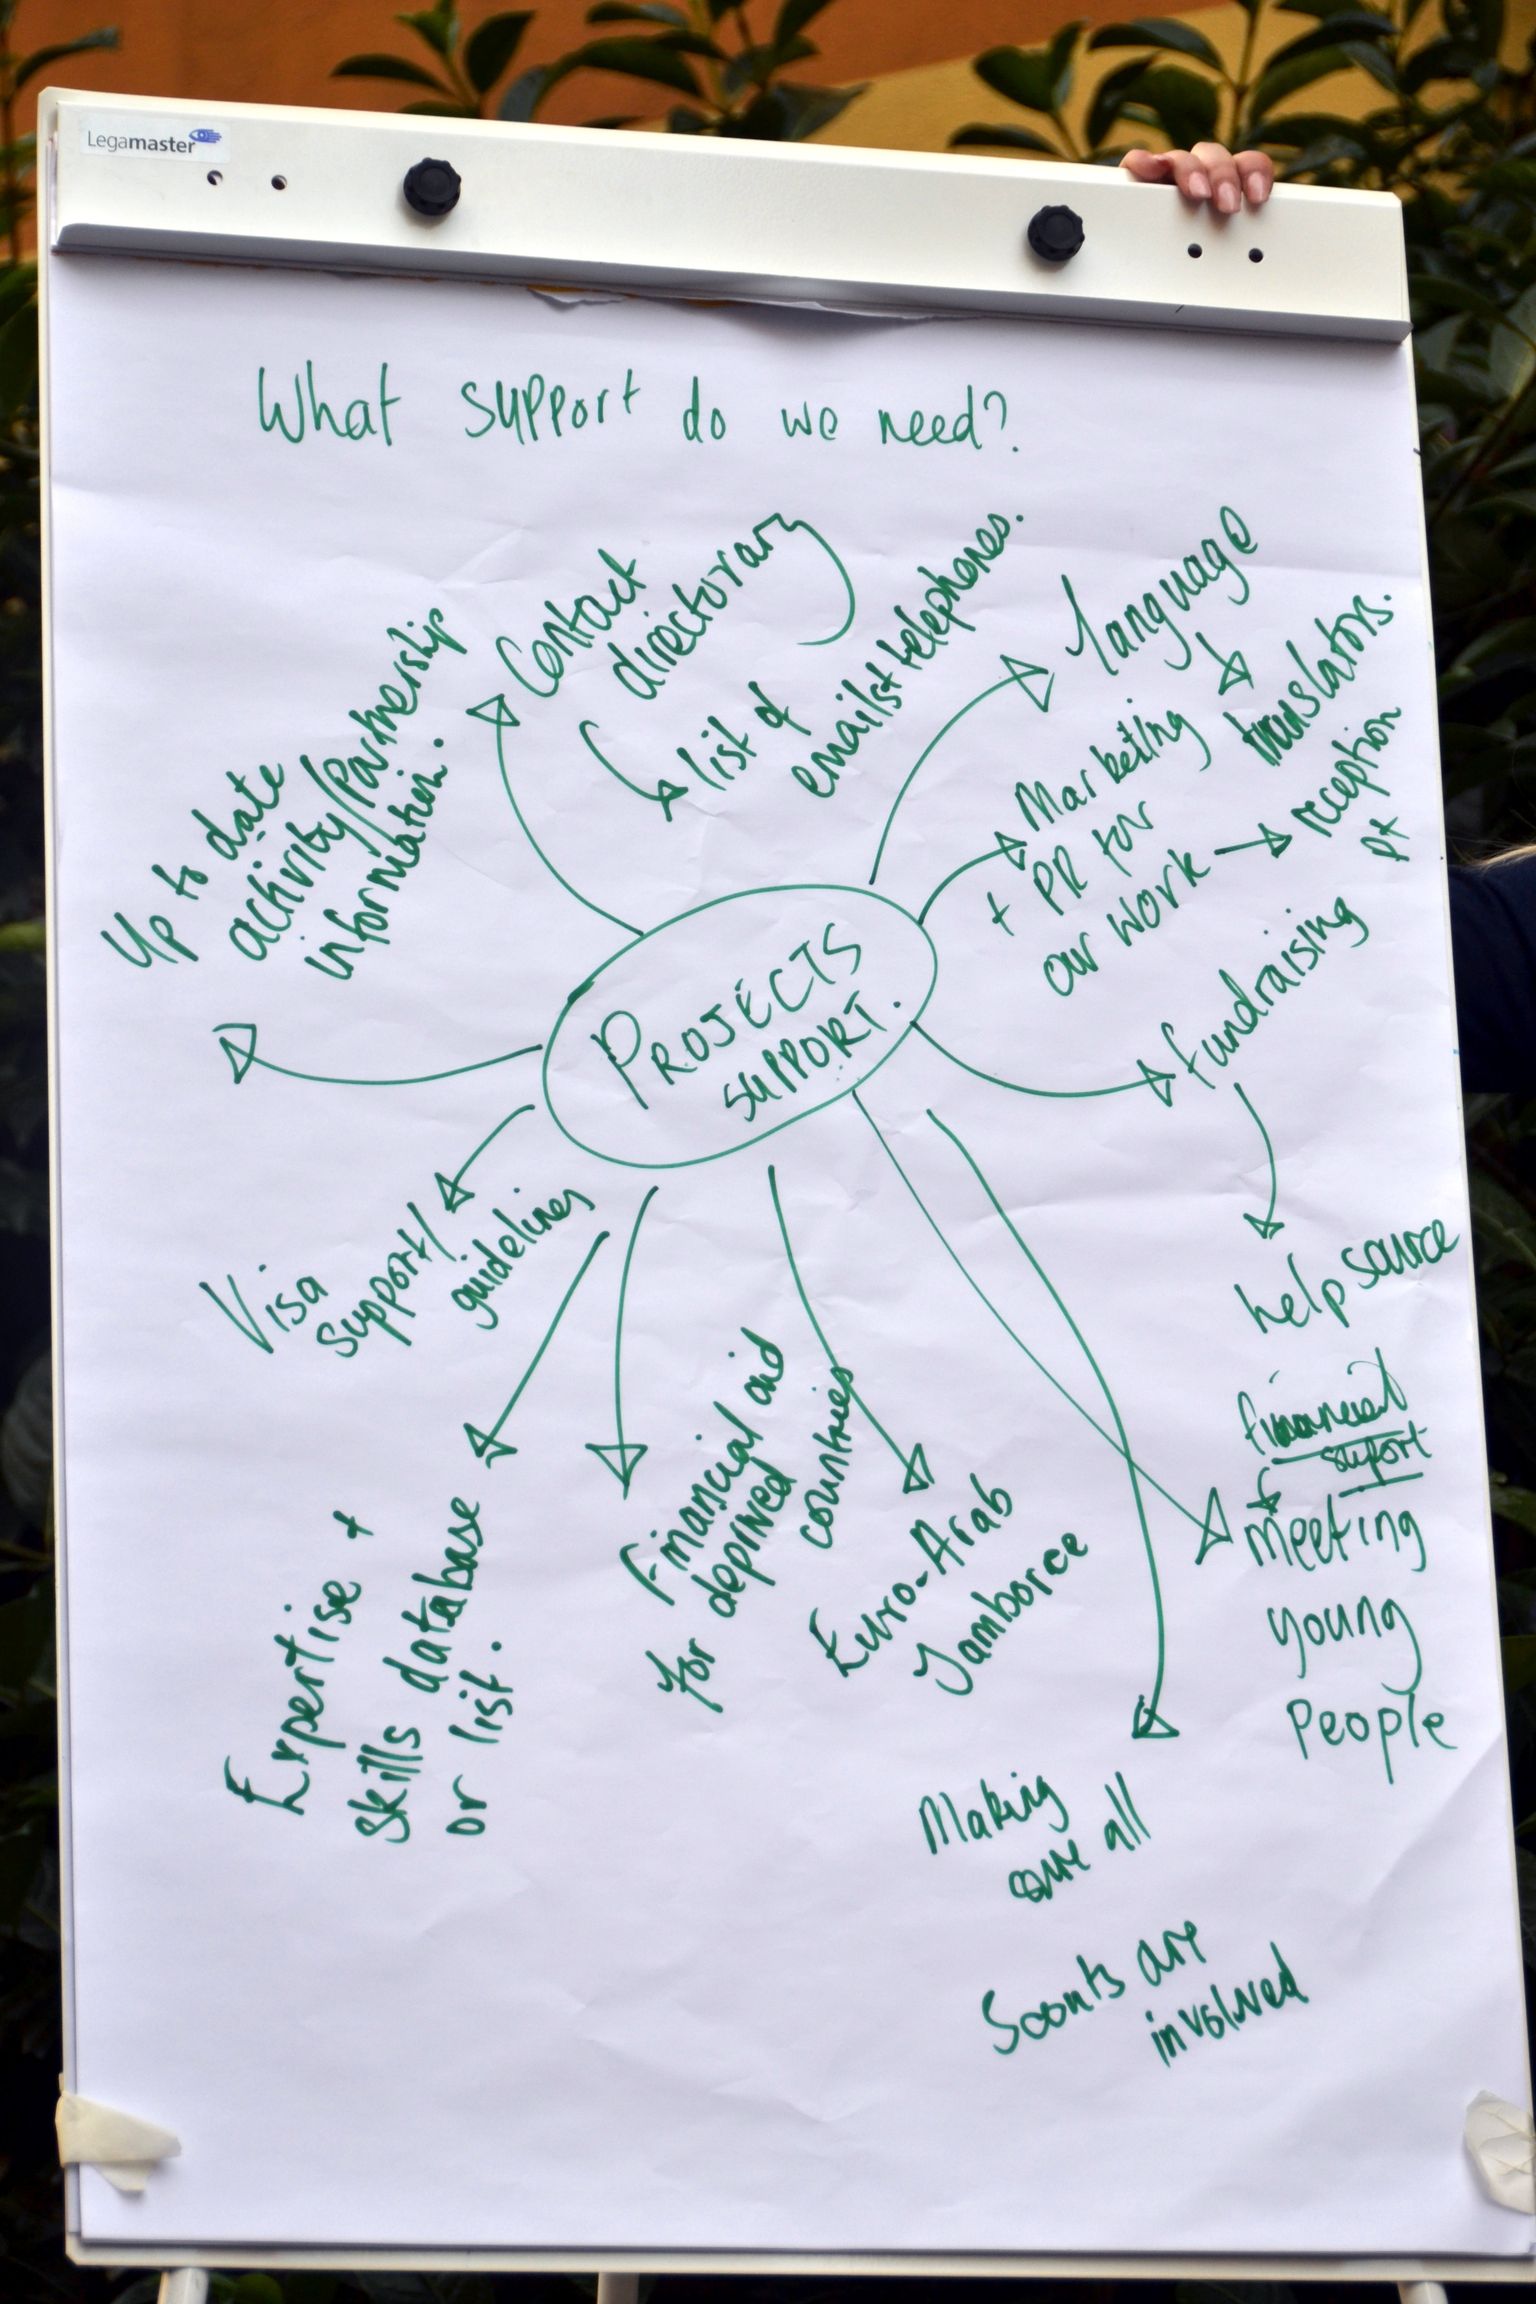 Legamaster
What support do we need?
Contact
directorary
list of
emails + telephones.
language
translators.
Marketing
+ PR for
our work
reception
pt
Up to date
activity/partnership
information.
PROJECTS
SUPPORT.
fundraising
help source
financial
support
Visa
support/
guidelines
Expertise +
skills database
or list.
Financial aid
for deprived
countries
Euro-Arab
Jamboree
meeting
young
people
Making
sure all
Scouts are
involved